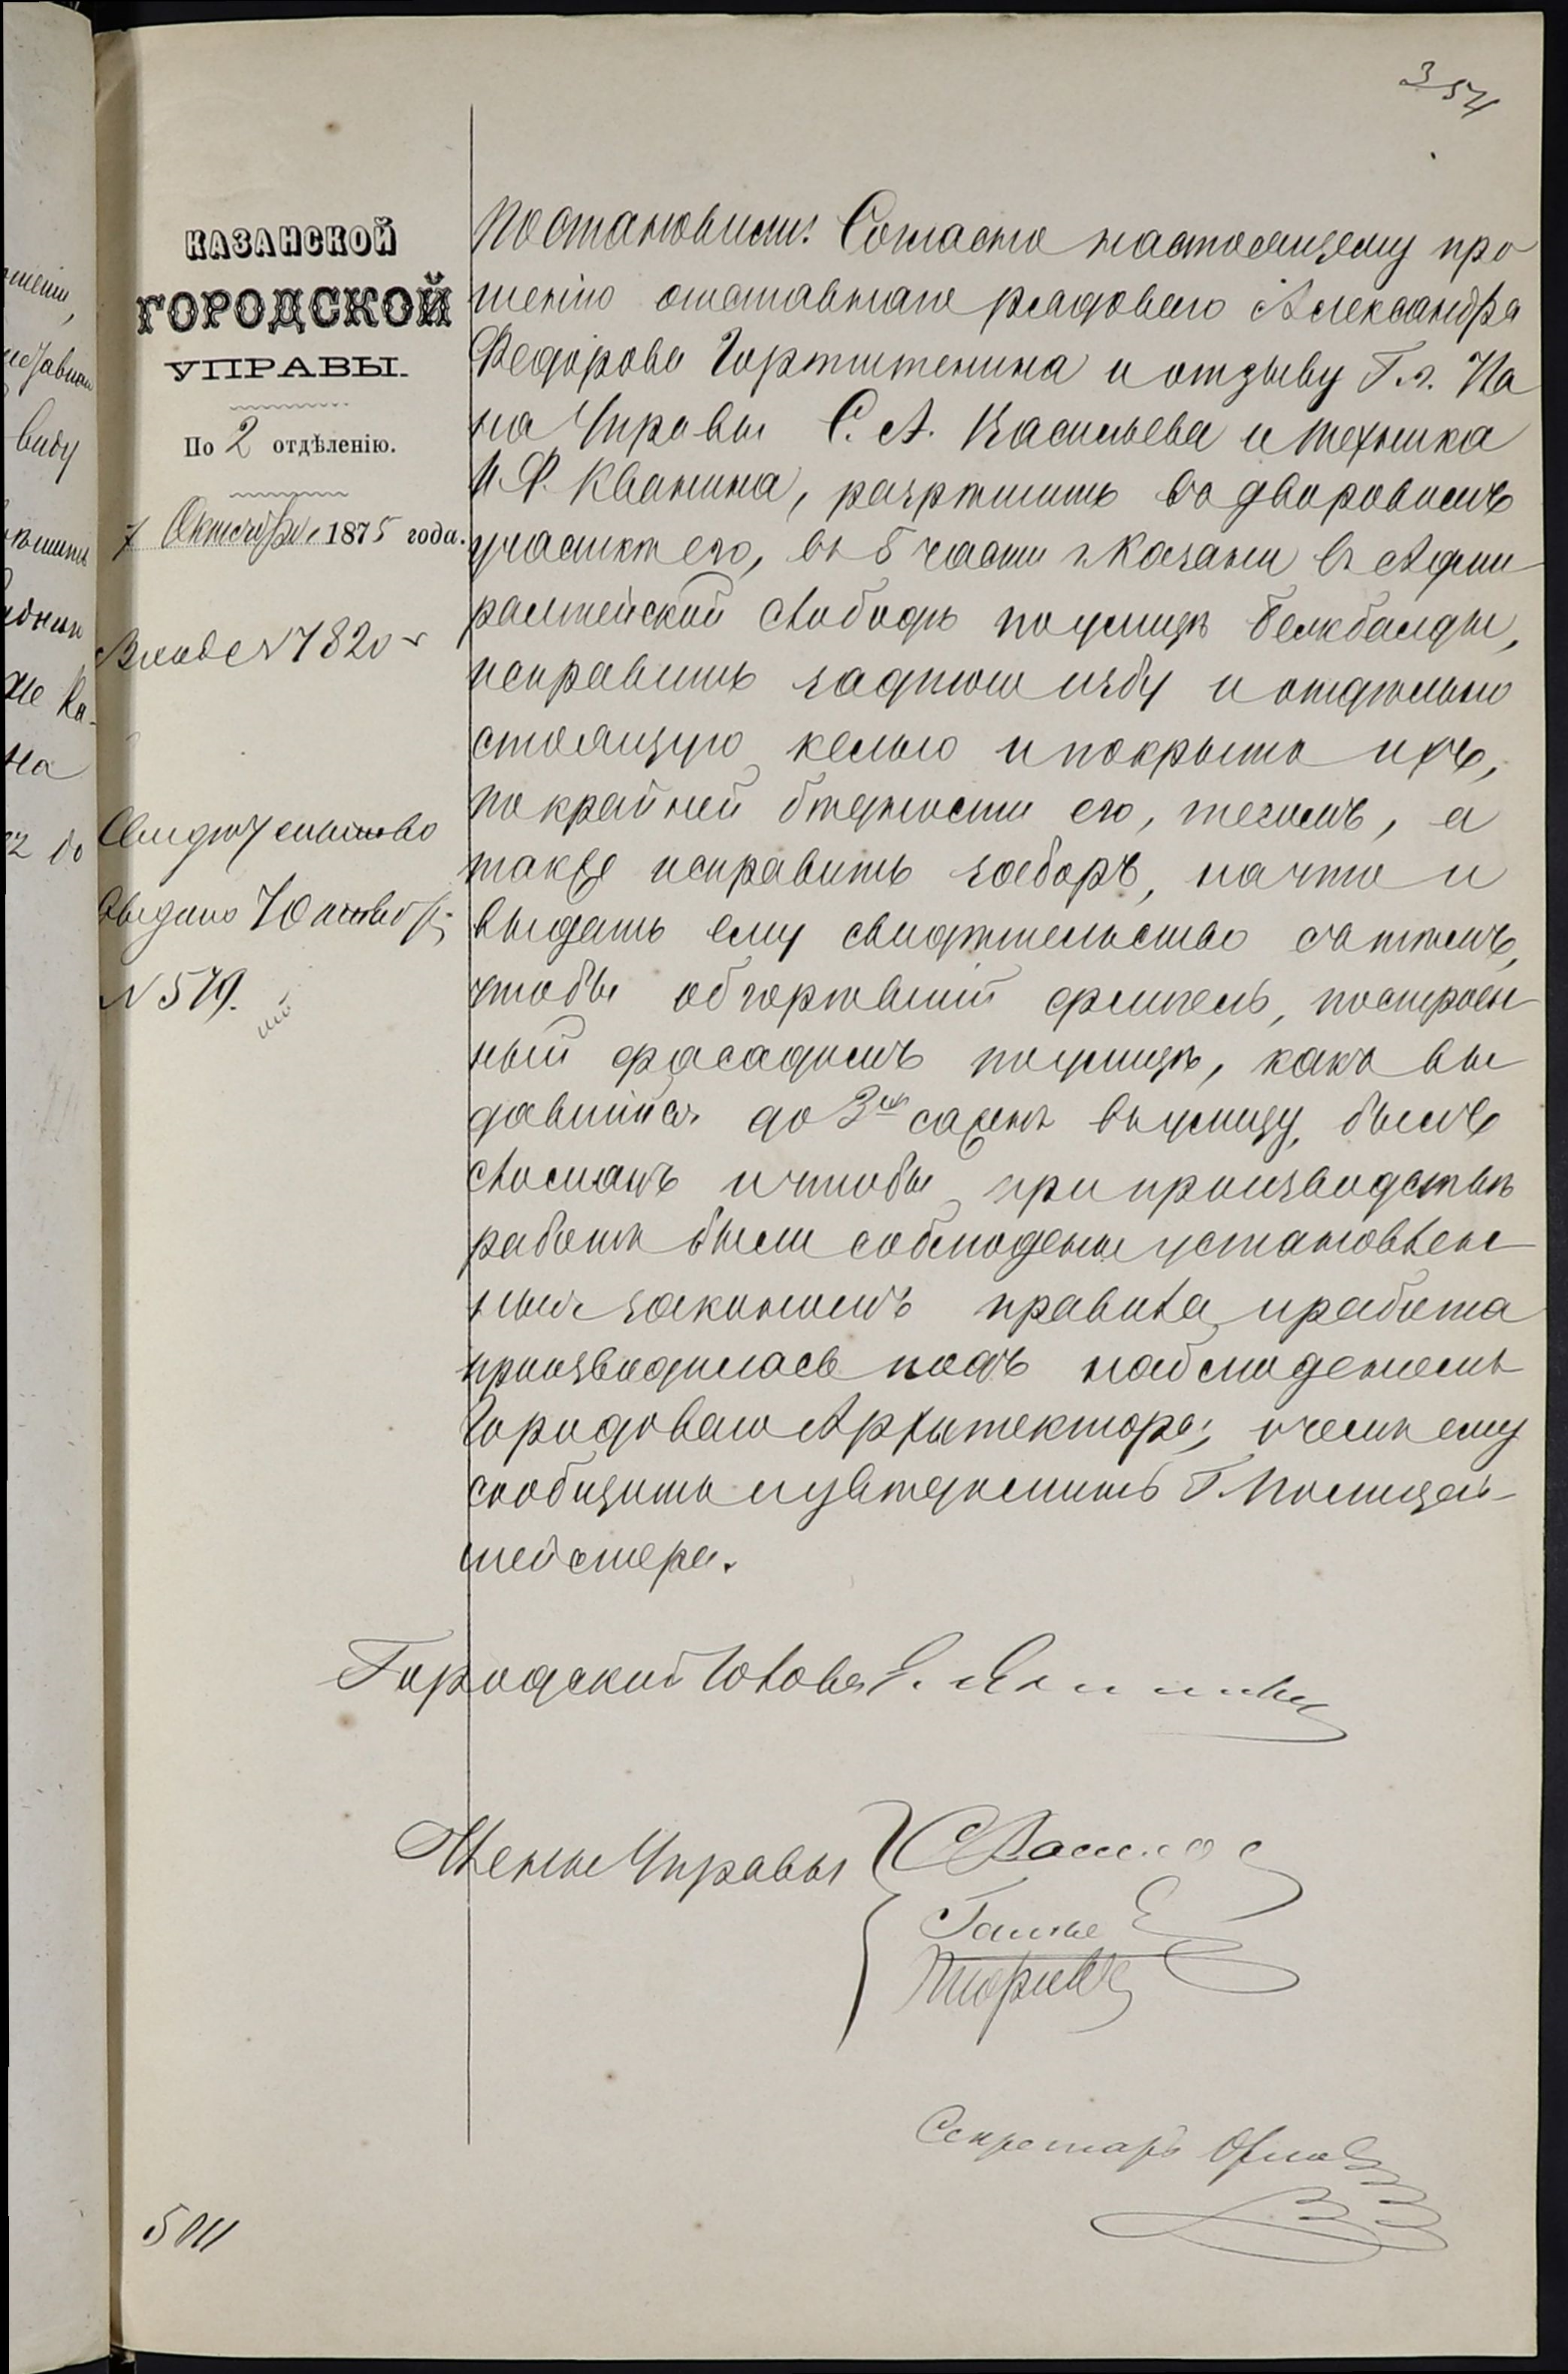 354
КАЗАНСКОЙ
ГОРОДСКОЙ
УПРАВЫ.
По 2 отдѣленію.
7 Октября 1875 года.
Входе № 7820
Свидѣтельство
выдано 7 Октября
№ 579.
Постановили: Согласно настоящему про
шенію отставнаго рядоваго Александра
Федорова Горнштенина и отзыву Г.г. Чле
на Управы С. А. Васильева и техника
П. Ф. Кванина, разрѣшить въ дворовомъ
участкѣ его, въ 5 части г. Казани въ Адми
ралтейской слободѣ по улицѣ Бешбалды,
исправить заднюю избу и отдѣльно
стоящую келью и покрыть ихъ,
по крайней бѣдности его, тесомъ, а
также исправить заборъ, на что и
выдать ему свидѣтельство съ тѣмъ,
чтобы обгорѣвшій флигель, построен
ный фасадомъ по улицѣ, какъ вы
давшійся до 3х сажень въ улицу, былъ
сломанъ и чтобы при производствѣ
работъ были соблюдены установлен
ныя закономъ правила и работа
производилась подъ наблюденіемъ
Городоваго Архитектора; о чемъ ему
сообщить и увѣдомить Г. Полицей
мейстера.
Городской Голова Э. Янишевскій
Члены Управы
С Васильев
Галкин
Секретарь Орлов
5011